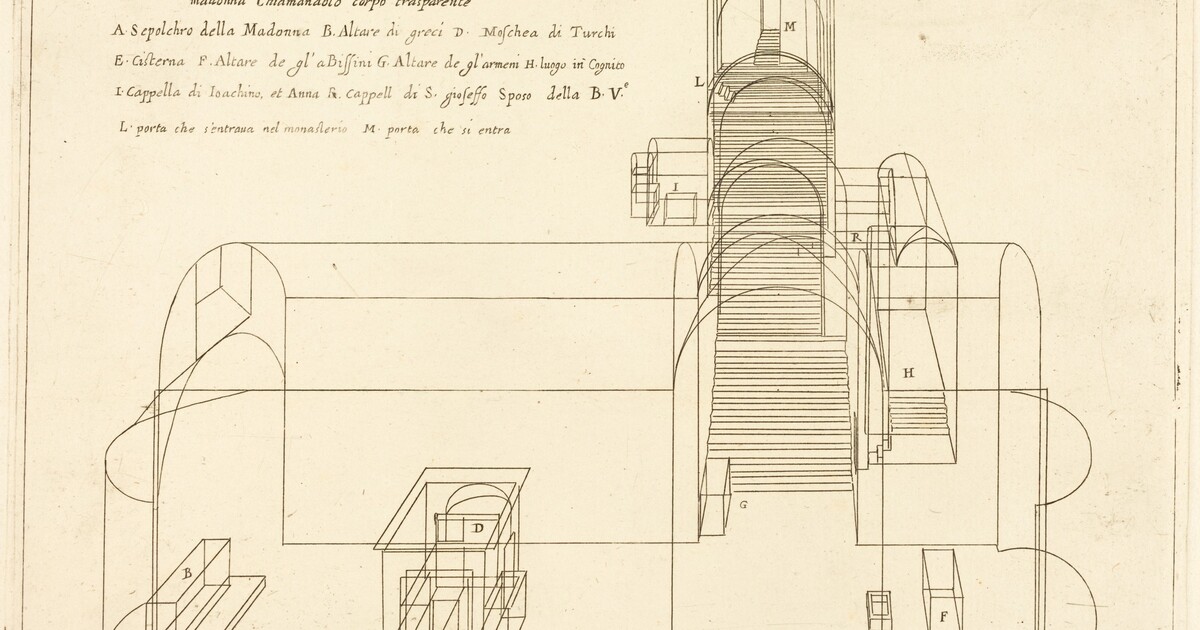 madonna Chiamandolo corpo trasparente
A. Sepolchro della Madonna B. Altare di greci D. Moschea di Turchi
E. Cisterna F. Altare de gl'aBissini G. Altare de gl'armeni H. luogo in Cognito
I. Cappella di Ioachino, et Anna R. Cappell di S. gioseffo Sposo della B. V.e
L. porta che s'entraua nel monasterio M. porta che si entra
M
L
I
R
H
G
D
B
F